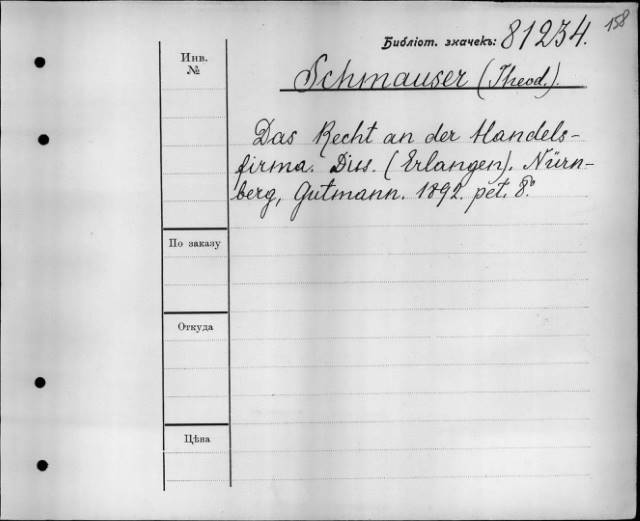 158
Библіот. значекъ: 81234.
Инв.
№
Schmauser (Theod.).
Das Recht an der Handels-
firma. Diss. (Erlangen). Nürn-
berg, Gutmann. 1892. pet. 8°.
По заказу
Откуда
Цѣна